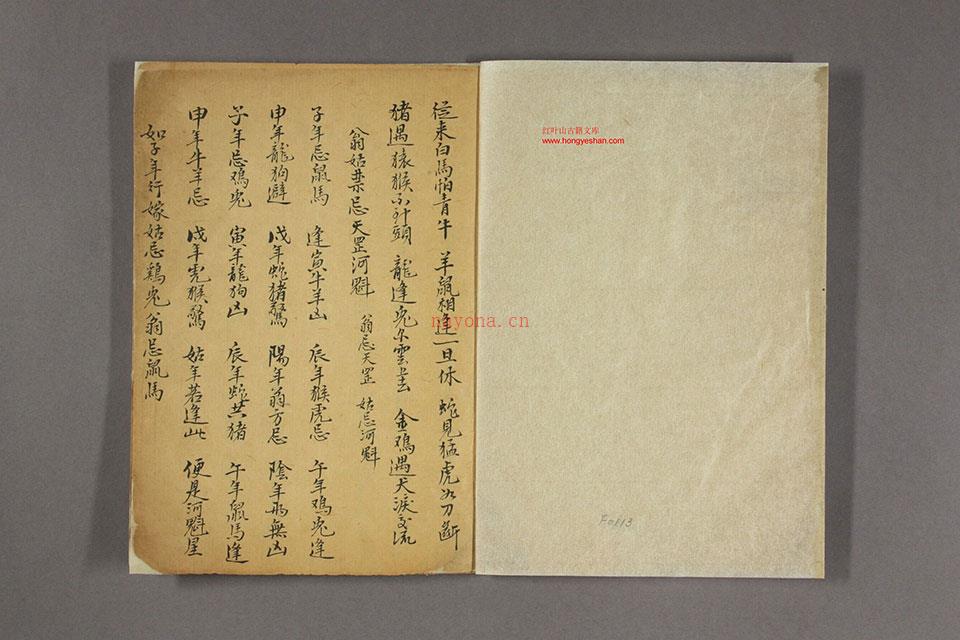 從来白馬怕青牛 羊鼠相逢一旦休 蛇見猛虎如刀斷
猪遇猿猴不到頭 龍逢兎尔雲去 金鸡遇犬淚交流
翁姑禁忌天罡河魁 翁忌天罡 姑忌河魁
子年忌鼠馬 逢寅牛羊凶 辰年猴虎忌 午年鸡兎逢
申年龍狗避 戌年蛇猪驚 陽年翁方忌 陰年無凶
子年忌鸡兎 寅年龍狗凶 辰年蛇共猪 午年鼠馬逢
申年牛羊忌 戌年虎猴驚 姑年若逢此 便是河魁星
如子年行嫁姑忌鷄兎翁忌鼠馬
红叶山古籍文库
www.hongyeshan.com
nayona.cn